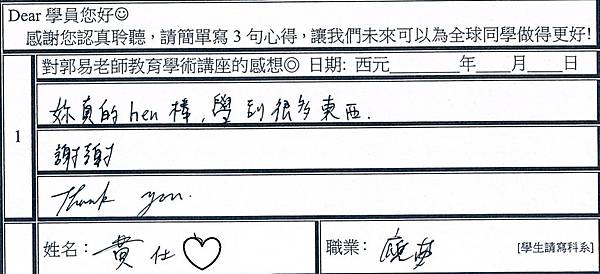 Dear 學員您好☺
感謝您認真聆聽，請簡單寫 3 句心得，讓我們未來可以為全球同學做得更好!
對郭易老師教育學術講座的感想◎ 日期: 西元________年____月____日
1
妳真的 hen 棒，學到很多東西.
謝謝
Thank you.
姓名：黃仕♡ 職業： [學生請寫科系]